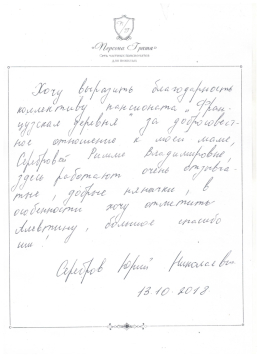 «Персона Грата»
Хочу выразить благодарность
коллективу пансионата "Фран-
цузская деревня" за добросовест-
ное отношение к моей маме,
Серебровой Римме Владимировне,
здесь работают очень отзывча-
тые, добрые нянечки, в
особенности хочу отметить
Алевтину, большое спасибо
им!
Серебров Юрий Николаевич
13.10.2018